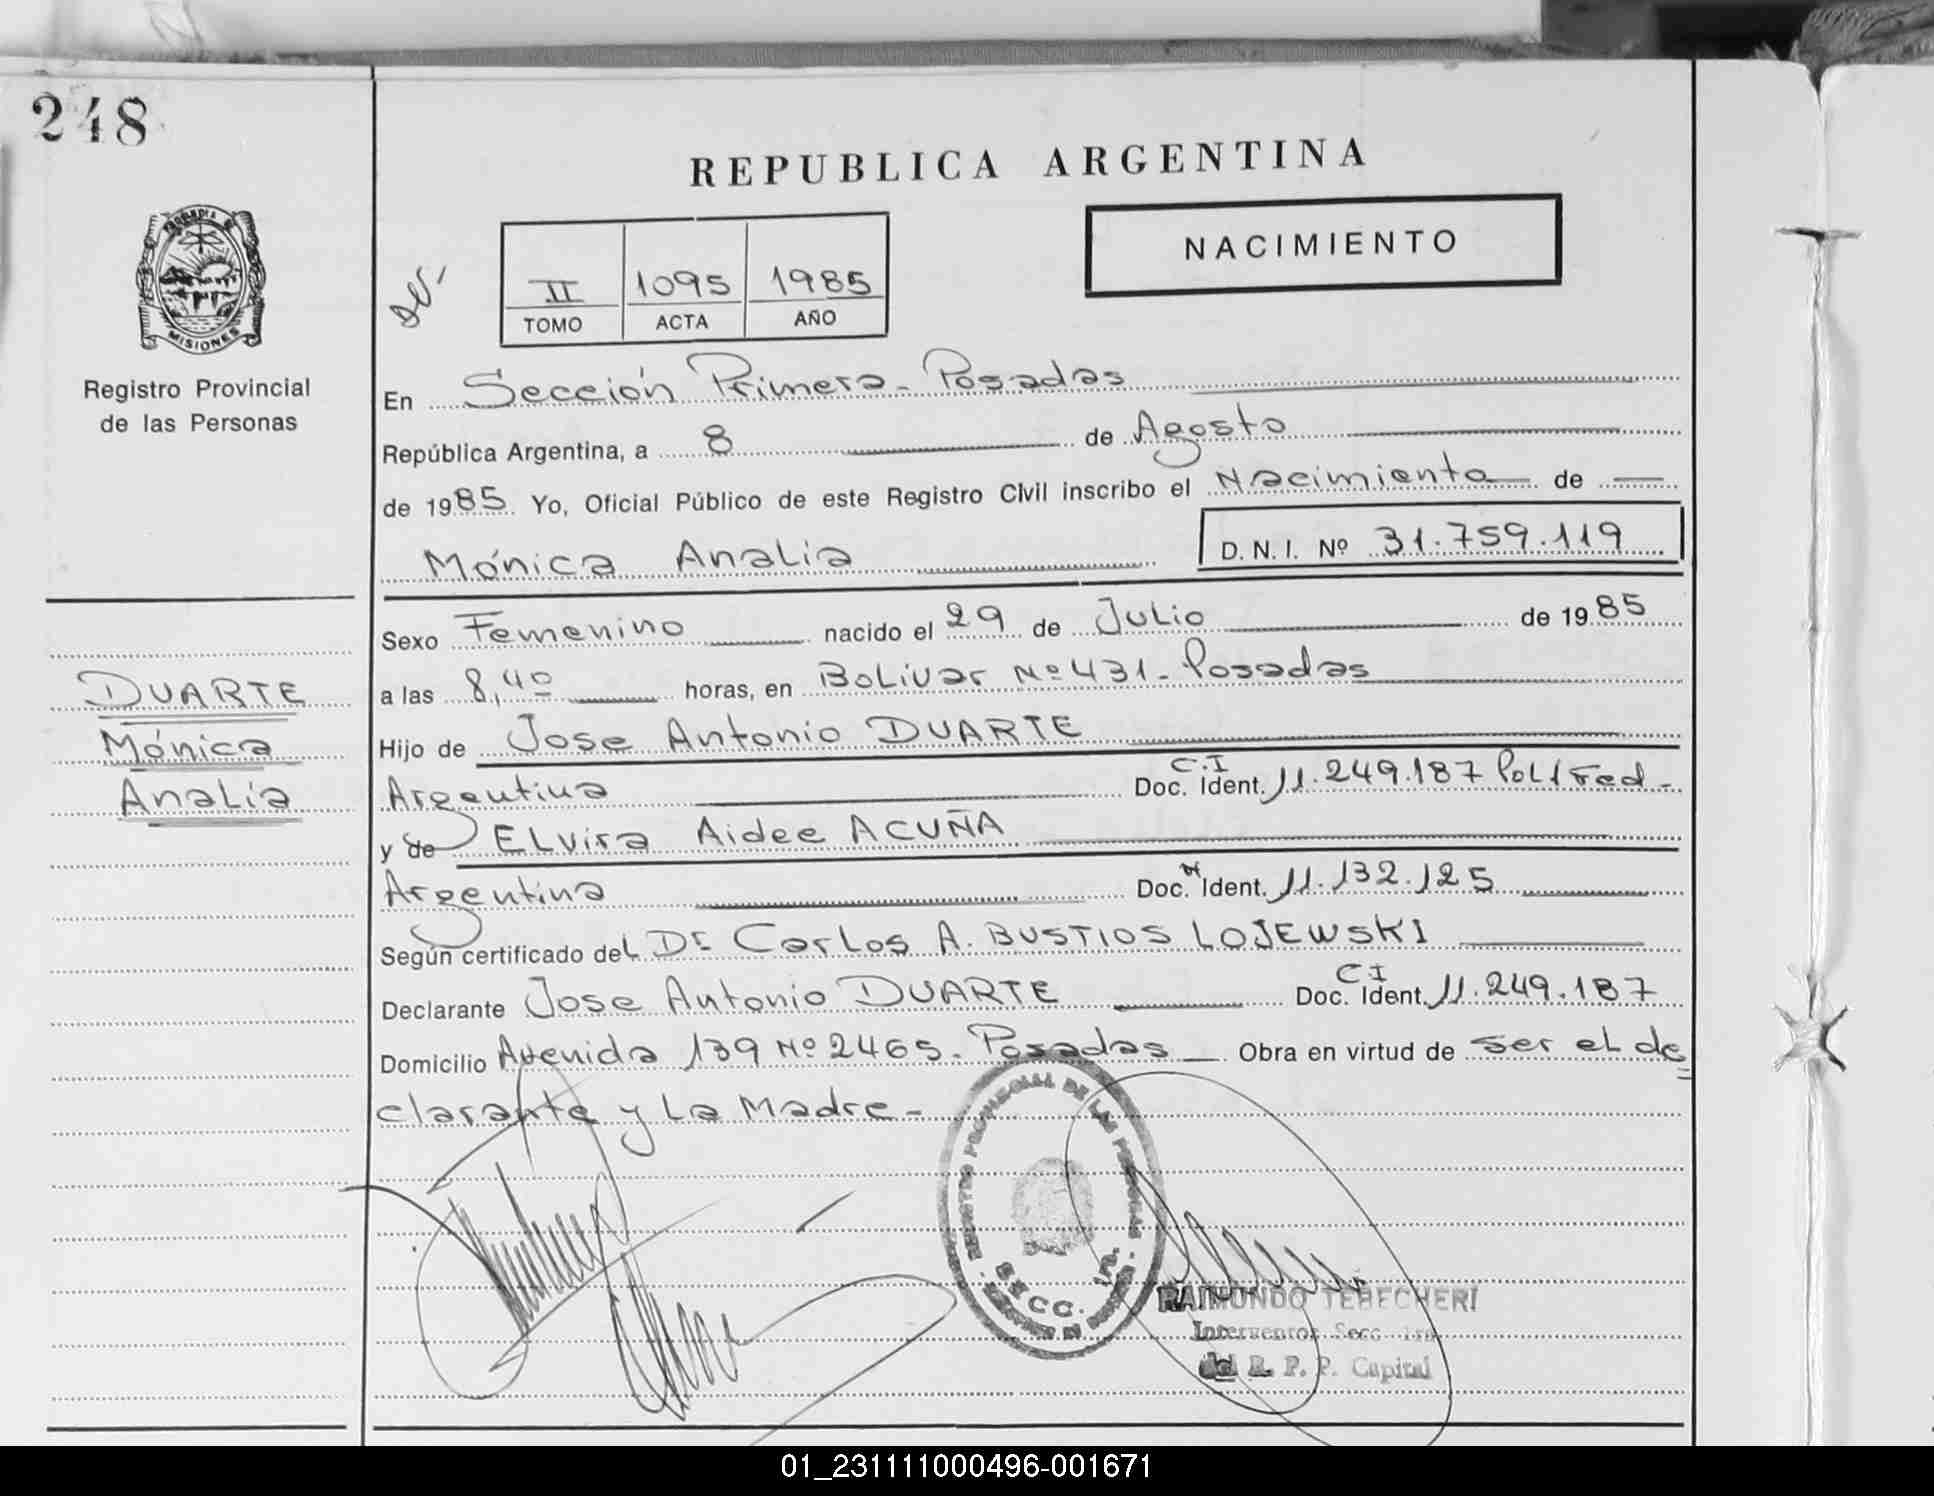 248
REPUBLICA ARGENTINA
NACIMIENTO
II 1095 1985
TOMO ACTA AÑO
MISIONES
Registro Provincial
de las Personas
En Sección Primera - Posadas
República Argentina, a 8 de Agosto
de 1985 Yo, Oficial Público de este Registro Civil inscribo el Nacimiento de
Mónica Analia
D. N. I. Nº 31.759.119
Sexo Femenino nacido el 29 de Julio de 1985
a las 8,40 horas, en Bolivar Nº 431 - Posadas
DUARTE
Mónica
Analia
Hijo de Jose Antonio DUARTE
Argentina Doc. Ident. C.I 11.249.187 Pol Fed -
y de Elvira Aidee ACUÑA
Argentina Doc. Ident. 11.132.125
Según certificado del Dr Carlos A. BUSTIOS LOJEWSKI
Declarante Jose Antonio DUARTE Doc. Ident. CI 11.249.187
Domicilio Avenida 139 Nº 2465 - Posadas Obra en virtud de ser el de
clarante y la Madre -
REGISTRO PROVINCIAL DE LAS PERSONAS
SECC. 1ra.
RAIMUNDO TEBECHERI
Interventor Secc. 1ra.
del R. P. P. Capital
01_231111000496-001671